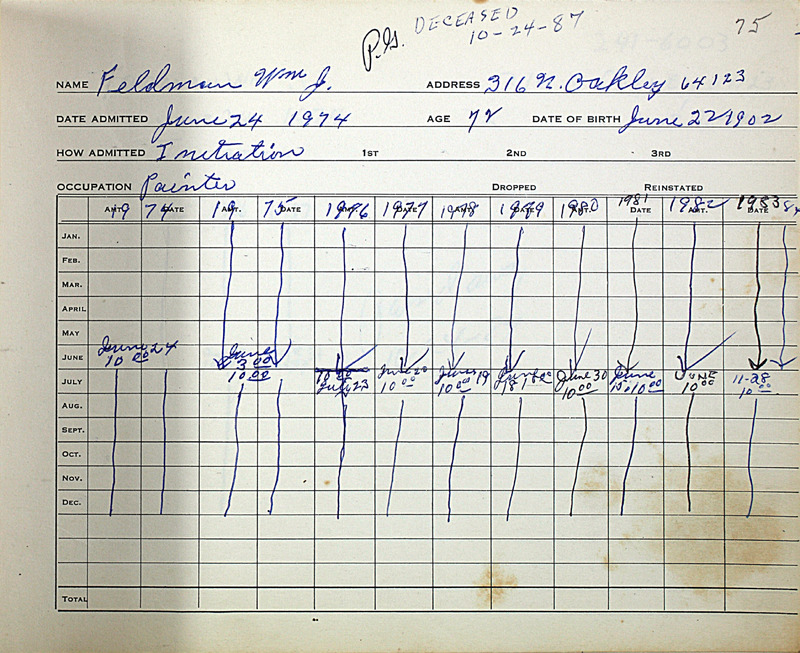 P.G. DECEASED 75
10-24-87
NAME Feldman Wm J. ADDRESS 316 N. Oakley 64123
DATE ADMITTED June 24 1974 AGE 72 DATE OF BIRTH June 22 1902
HOW ADMITTED Inetration 1ST 2ND 3RD
OCCUPATION Painter DROPPED REINSTATED
AMT. 19 74 DATE 19 AMT. 75 DATE 1976 AMT. 1977 DATE 1978 AMT. 1979 DATE 1980 AMT. 1981 DATE 1982 AMT. 1983 DATE 84
JAN.
FEB.
MAR.
APRIL
MAY
JUNE June 24 10 00 June 3 00
JULY 10 00 10 00 July 23 June 20 10 00 June 19 10 00 June 18 June 30 10 00 June 15. 10 00 JUNE 10 00 11-28 10 00
AUG.
SEPT.
OCT.
NOV.
DEC.
TOTAL